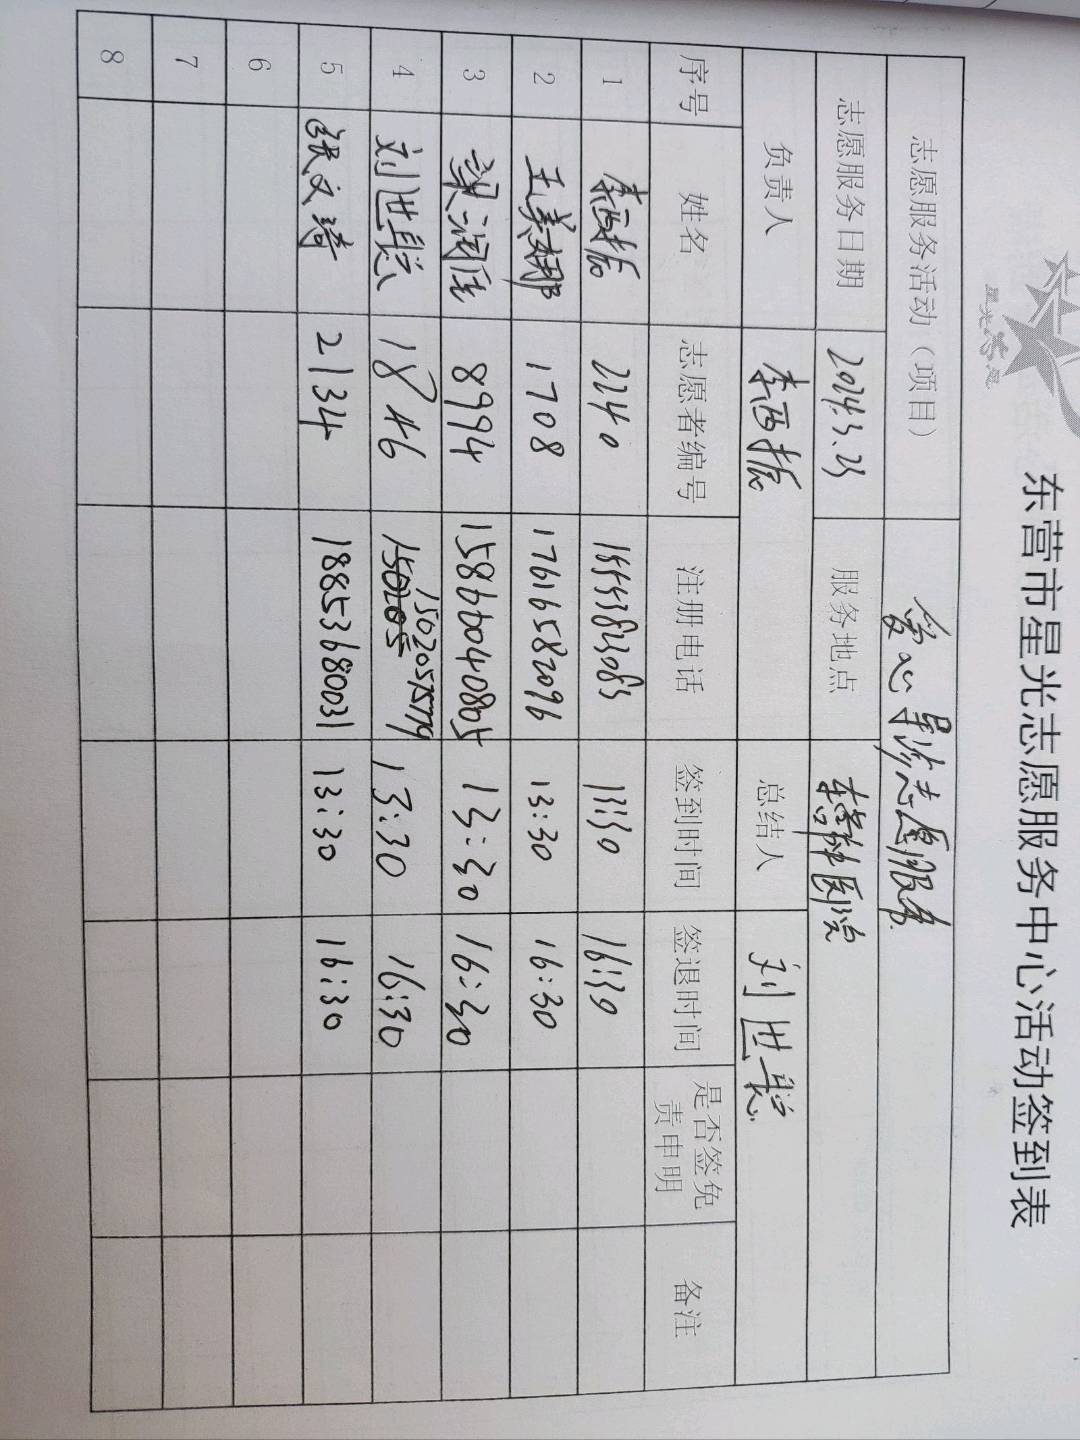 东营市星光志愿服务中心活动签到表
志愿服务活动（项目） 爱心导诊志愿服务
志愿服务日期 2024.3.23 服务地点 医院
负责人 李西振 总结人 刘世
序号 姓名 志愿者编号 注册电话 签到时间 签退时间 是否签免责申明 备注
1 李西振 2240 13:30 16:30
2 王美娜 1708 17616582096 13:30 16:30
3 梁润 8994 15866040805 13:30 16:30
4 刘世 1846 13:30 16:30
5 张文琦 2134 18853680031 13:30 16:30
6
7
8